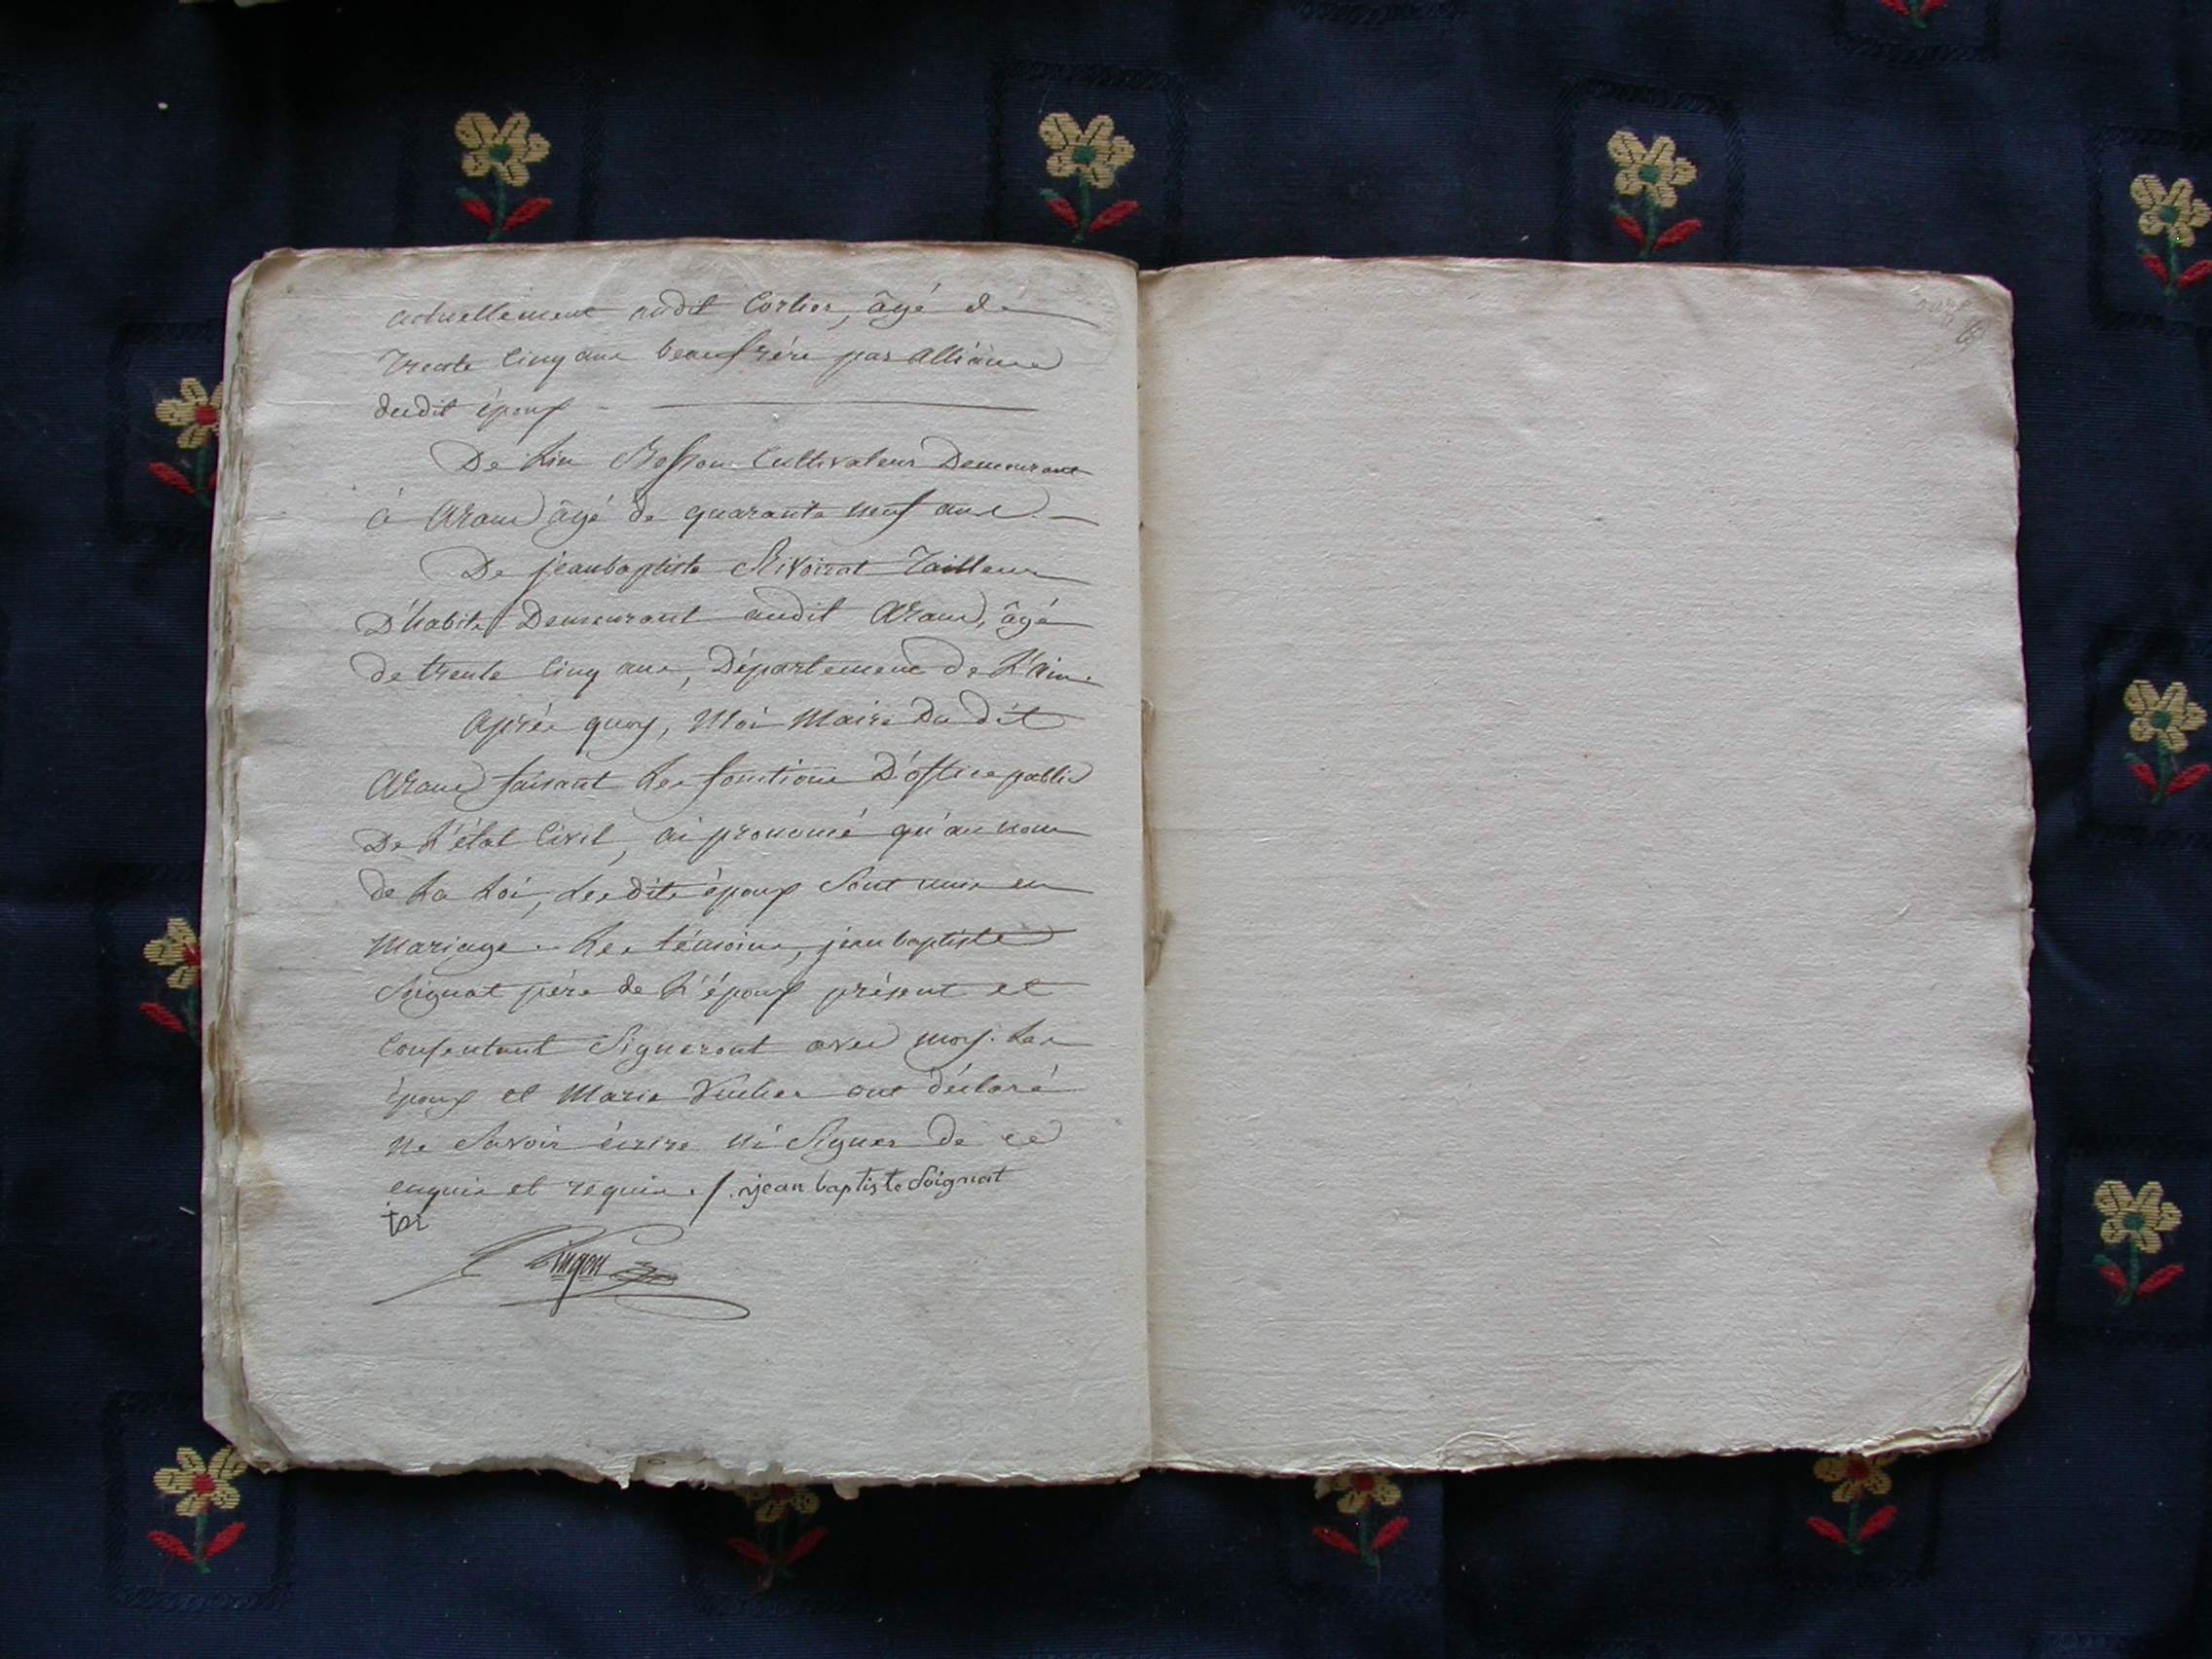 actuellement audit Corlier, âgé de
trente cinq ans beaufrère par alliance
dudit époux
De Besson Cultivateur Demeurant
à Aranc âgé de quarante neuf ans.
De jeanbaptiste Rivoirat Tailleur
D'habits Demeurant audit Aranc, âgé
de trente cinq ans, Département de L'ain.
Après quoy, Moi Maire Du dit
Aranc faisant Les fonctions D'office public
De L'état Civil, ai prononcé qu'au nom
de La Loi, Lesdits époux Sont unis en
Mariage. Les témoins, jeanbaptiste
Soignat père de L'époux présent et
Consentant Signeront avec moy. Les
époux et Marie ont déclaré
ne Savoir écrire ni Signer de ce
enquis et requis. /. jean baptiste Soignat
Pingon